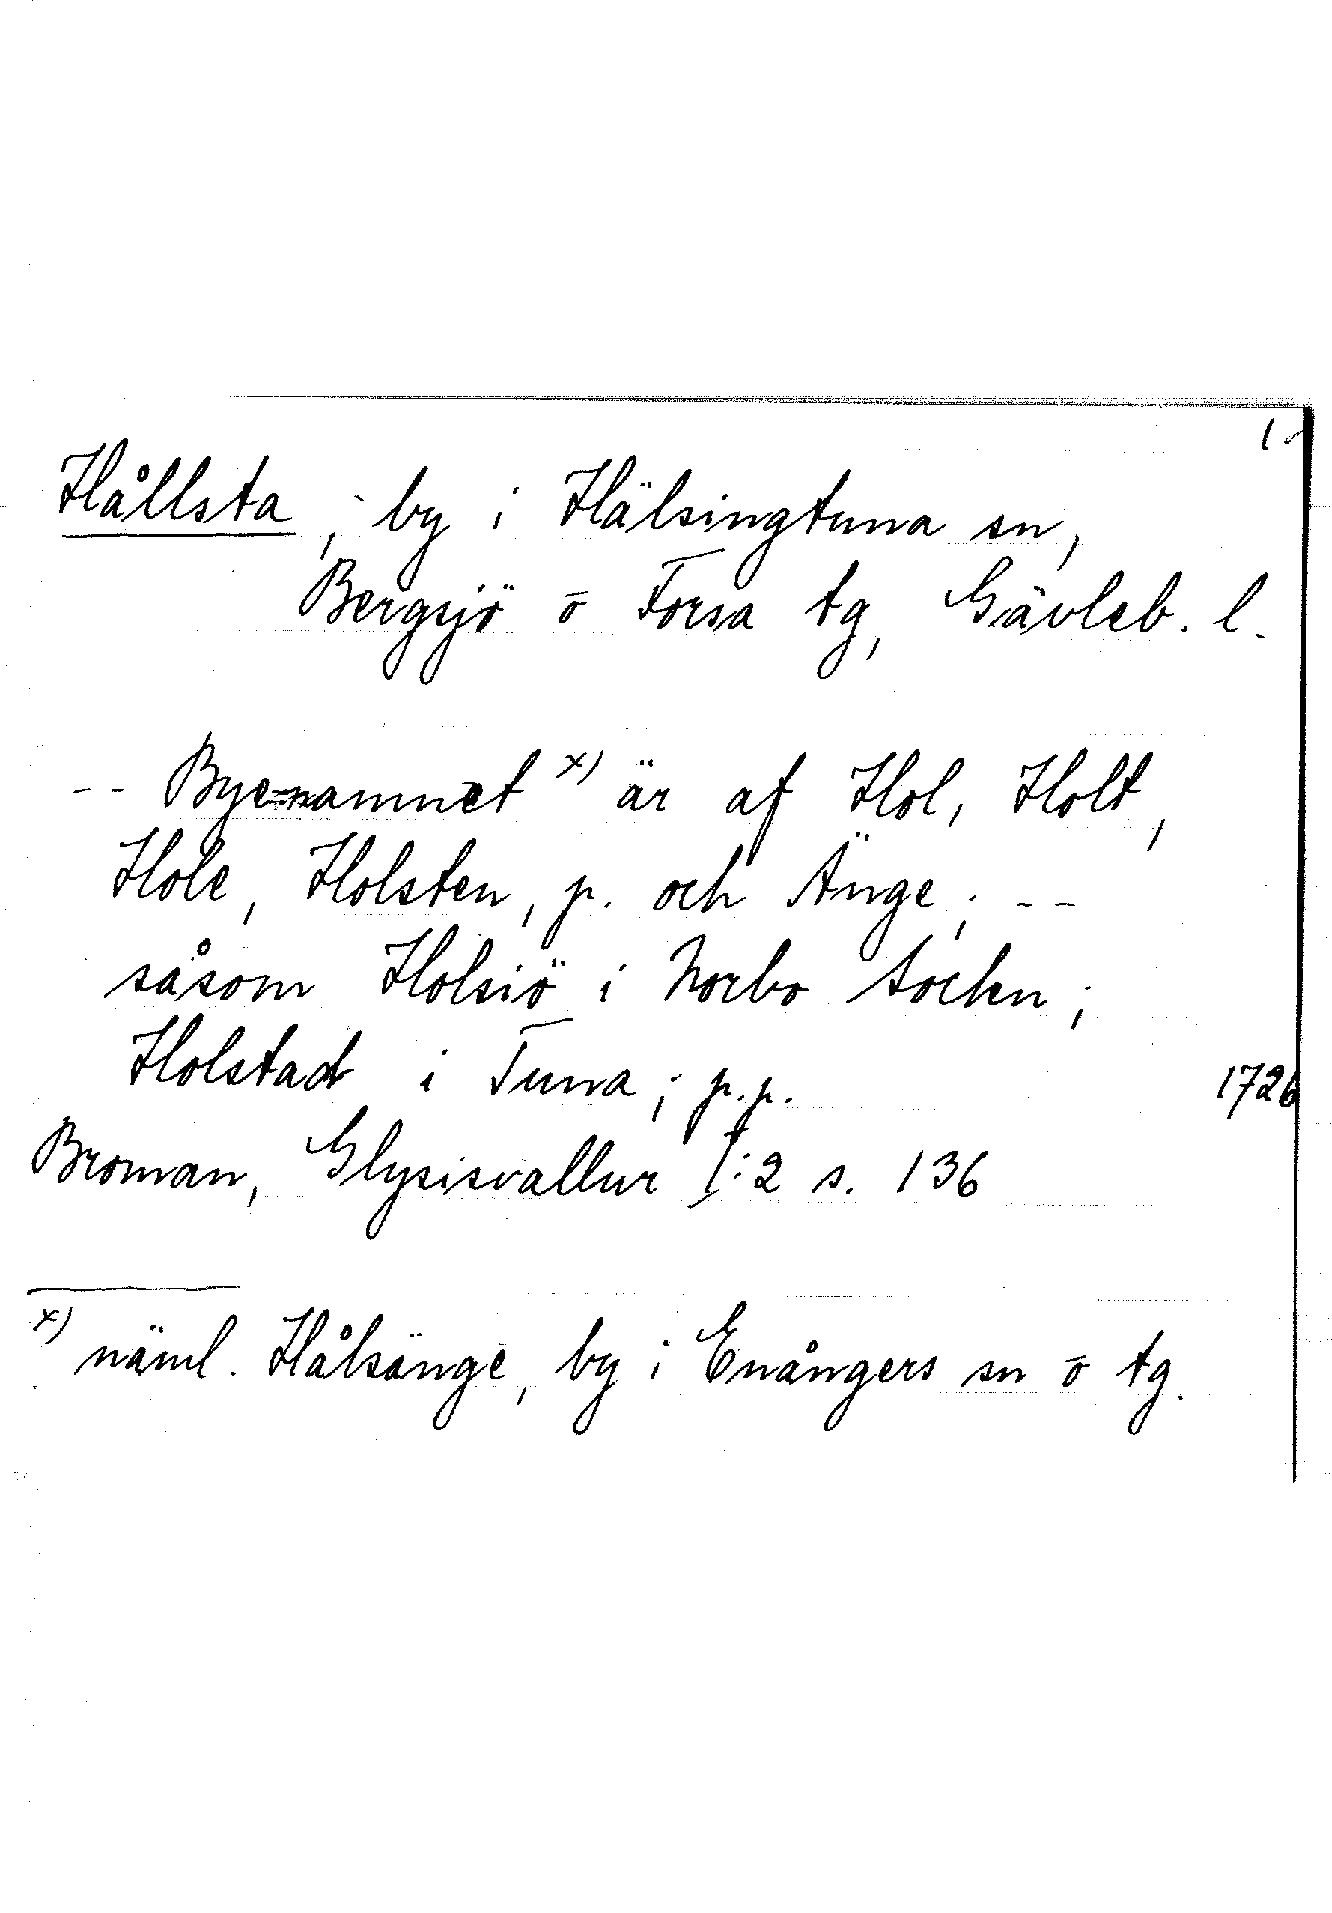 Hållsta, by i Hälsingtuna sn,
Bergsjö o Forsa tg, Gävleb. l.
-- Byenamnet x) är af Hol, Holt,
Hole, Holsten, p. och Änge; --
såsom Holsiö i Norbo Sochn;
Holstad i Tuna; p.p.
1726
Broman, Glysisvallur I:2 s. 136
x) näml. Hålsänge, by i Enångers sn o tg.